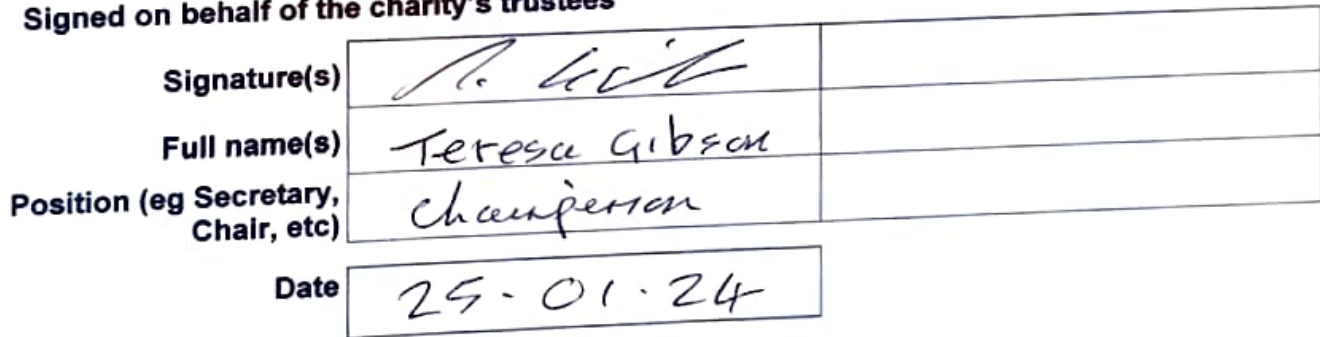 Signed on behalf of the charity's trustees
Signature(s)
Full name(s) Teresa Gibson
Position (eg Secretary, Chairperson
Chair, etc)
Date 25.01.24